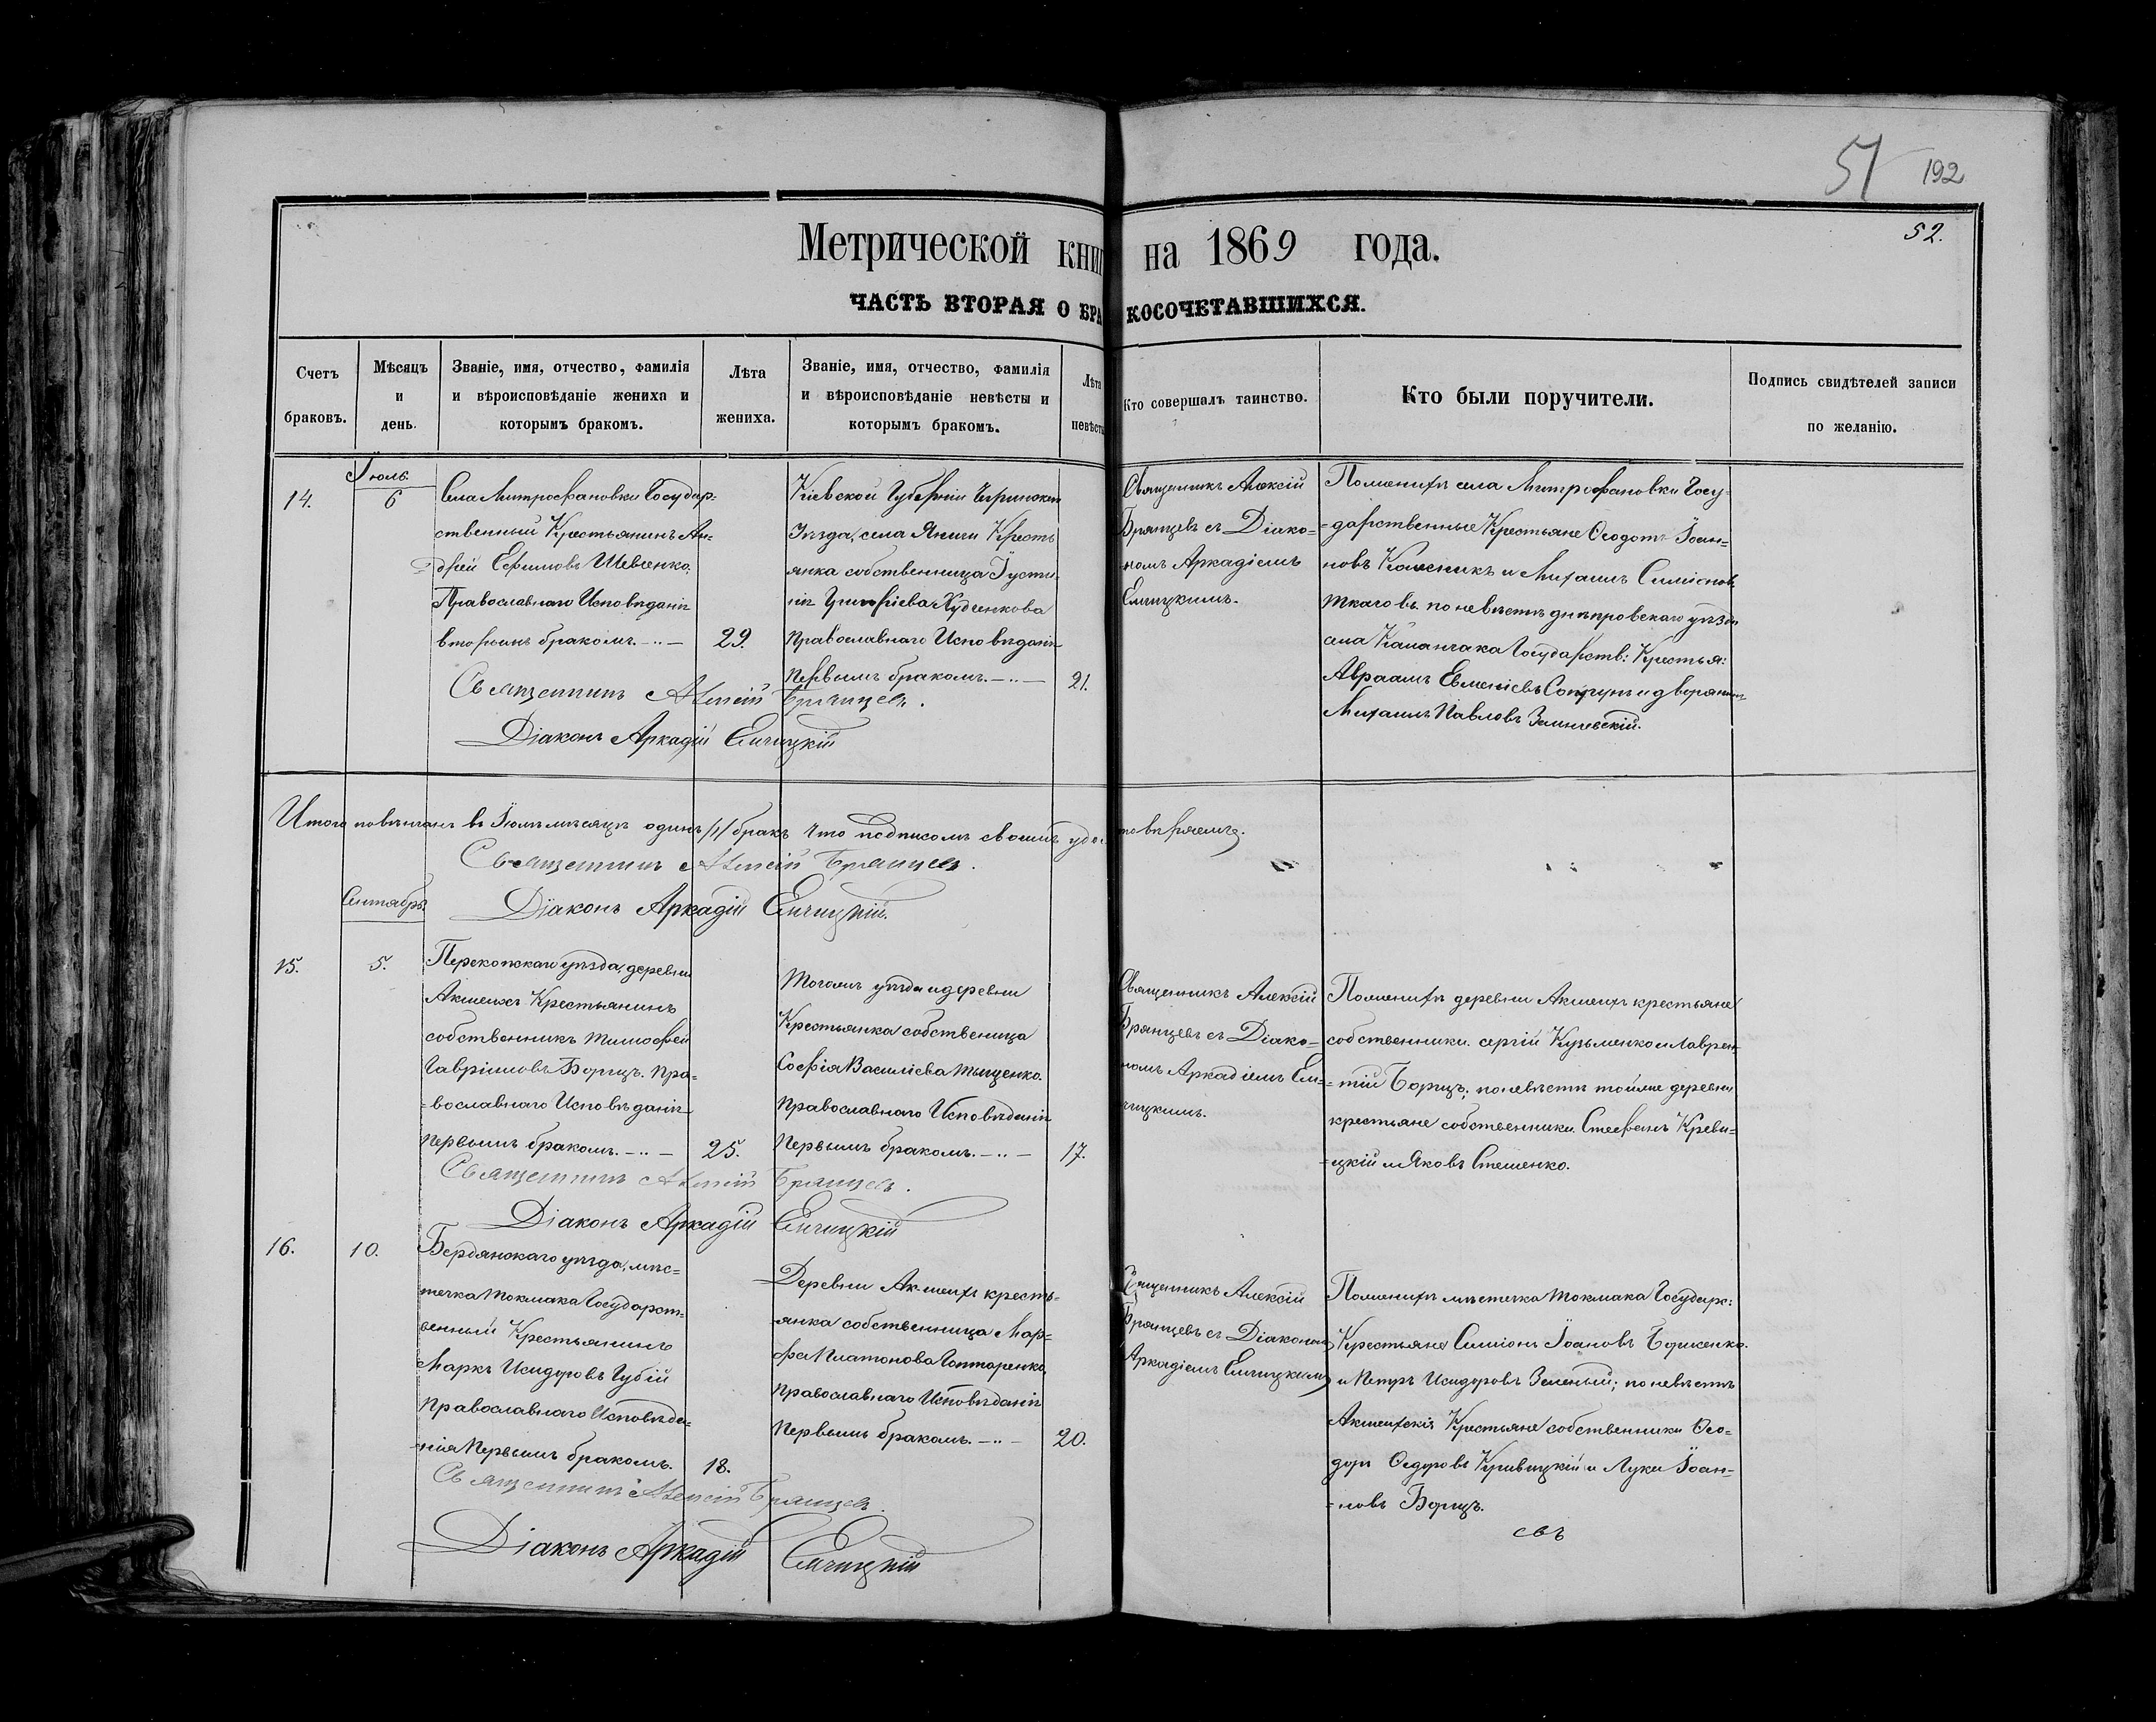 51 192
52.
Метрической книг на 1869 года.
ЧАСТЬ ВТОРАЯ О БРАКОСОЧЕТАВШИХСЯ.
Счетъ браковъ.
Мѣсяцъ и день.
Званіе, имя, отчество, фамилія
и вѣроисповѣданіе жениха и
которымъ бракомъ.
Лѣта жениха.
Званіе, имя, отчество, фамилія
и вѣроисповѣданіе невѣсты и
которымъ бракомъ.
Лѣта невѣсты
Кто совершалъ таинство.
Кто были поручители.
Подпись свидѣтелей записи
по желанію.
Іюль.
14.
6
Села Митрофановки Государ-
ственный Крестьянинъ Ан-
дрей Ефимовъ Шевченко.
Православнаго Исповѣданія
вторымъ бракомъ.
29.
Кіевской Губерніи
Уѣзда, села Яничи Кресть
янка собственница Густи-
нія Худченкова
Православнаго Исповѣданія
первымъ бракомъ.
21.
Священникъ Алексій
Брянцевъ съ Діако-
номъ Аркадіемъ
Енчицкимъ.
По женихѣ села Митрофановки Госу-
=дарственные Крестьяне Ѳеодотъ Іоан-
новъ и Михаилъ Симіоновъ
по невѣстѣ днѣпровскаго уѣзда
села Каланчака Государств: Крестья:
Авраамъ Евменіевъ и дворянинъ
Михаилъ Павловъ
Священникъ Алексій Брянцевъ.
Діаконъ Аркадій Енчицкій
Итого повѣнчанъ въ Іюлѣ мѣсяцѣ одинъ /1/ бракъ Что подписомъ своимъ удостовѣряемъ.
Священникъ Алексій Брянцевъ.
Діаконъ Аркадій Енчицкій.
Сентябрь
15.
5.
Перекопскаго уѣзда, деревни
Акшеихъ Крестьянинъ
собственникъ Тимофей
Гавріиловъ Борщъ. Пра-
=вославнаго Исповѣданія
первымъ бракомъ.
25.
Тогожъ уѣзда и деревни
Крестьянка собственица
Софія Василіева Тищенко.
Православнаго Исповѣданія
Первымъ бракомъ.
17.
Священникъ Алексій
Брянцевъ съ Діако-
номъ Аркадіемъ Ен-
чицкимъ.
По женихѣ деревни Акшеихъ крестьяне
собственники. сергій Кузьменко и Лаврен-
=тій Борщъ; по невѣстѣ тойже деревни
крестьяне собственники Стефанъ Криви-
=цкій и Яковъ Стешенко.
Священникъ Алексій Брянцевъ.
Діаконъ Аркадій Енчицкій
16.
10.
Бердянскаго уѣзда, мѣс-
течка Токмака Государст-
венный Крестьянинъ
Маркъ Исидоровъ Губій
Православнаго Исповѣда-
нія Первымъ бракомъ.
18.
Деревни Акшеихъ кресть-
янка собственница Мар-
фа Платонова Гонтаренко,
Православнаго Исповѣданія
Первымъ бракомъ.
20.
Священникъ Алексій
Брянцевъ съ Діакономъ
Аркадіемъ Енчицкимъ
По женихѣ мѣстечка Токмака Государс:
Крестьяне Симіонъ Іоановъ
и Петръ Исидоровъ Зеленый; по невѣстѣ
Акшеихскія Крестьяне собственники Ѳео-
доръ Ѳедоровъ Кривицкій и Лука Іоан-
=новъ Борщъ.
Священникъ Алексій Брянцевъ.
Діаконъ Аркадій Енчицкій